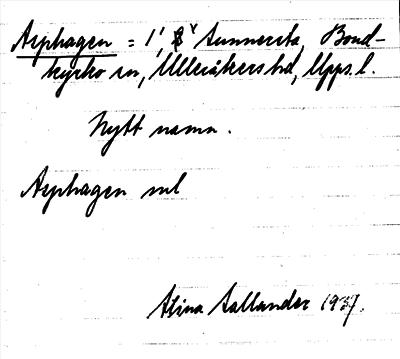 Asphagen = 1', 8ˠ Sunnersta, Bond-
kyrko sn, Ulleråkers hd, Upps. l.
Nytt namn.
Asphagen ml
Stina Sallander 1937.